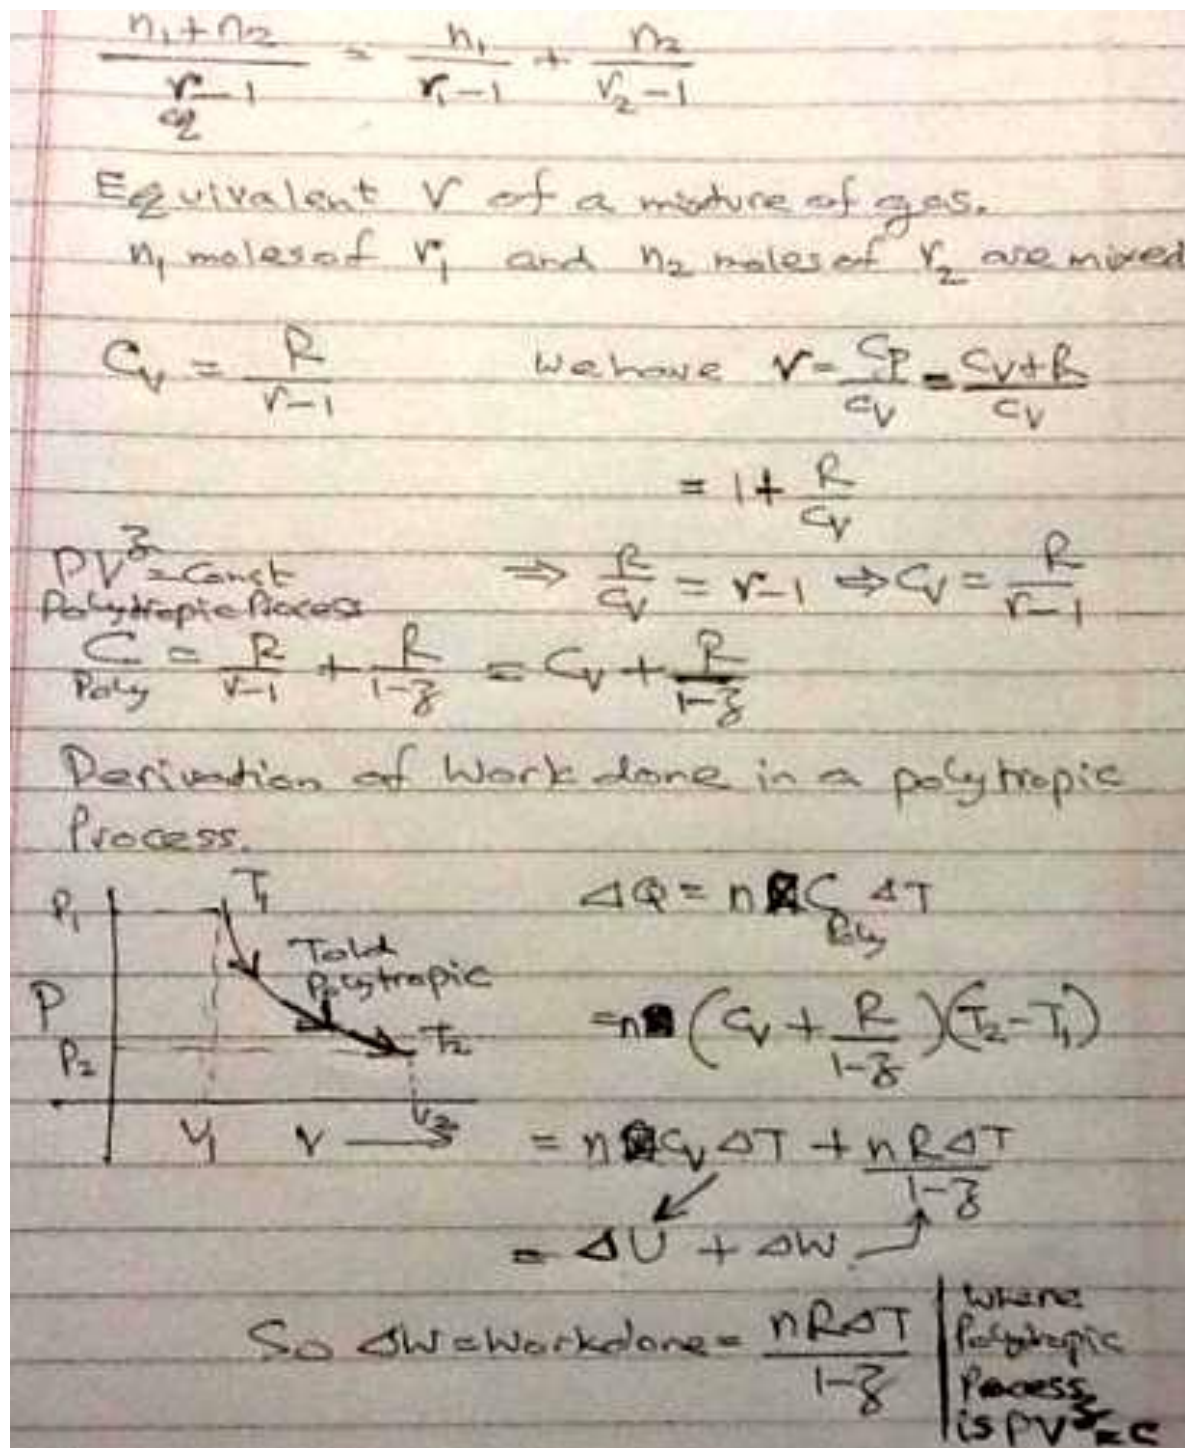 n₁+n₂ / r_eq −1 = n₁ / r₁−1 + n₂ / r₂−1
Equivalent r of a mixture of gas.
n₁ moles of r₁ and n₂ moles of r₂ are mixed
C_V = R / r−1 We have r = C_P / C_V = C_V+R / C_V
= 1 + R / C_V
PV^z = Const
Polytropic Process
⇒ R / C_V = r−1 ⇒ C_V = R / r−1
C_Poly = R / r−1 + R / 1−z = C_V + R / 1−z
Derivation of Work done in a polytropic
Process.
P₁ T₁
P
P₂ T₂
V₁ V → V₂
polytropic
ΔQ = n C_Poly ΔT
= n (C_V + R / 1−z)(T₂−T₁)
= n C_V ΔT + nRΔT / 1−z
= ΔU + ΔW
So ΔW = Workdone = nRΔT / 1−z
Where
Polytropic
Process
is PV^z = C